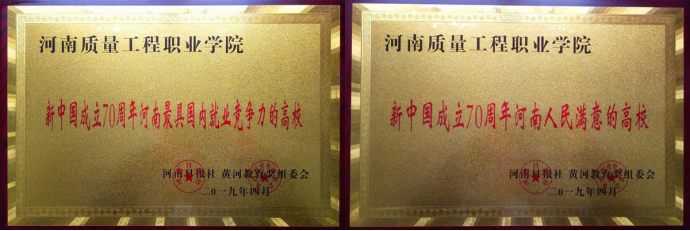 河南质量工程职业学院
新中国成立70周年河南最具国内就业竞争力的高校
河南日报社 黄河教育奖组委会
二〇一九年四月
河南质量工程职业学院
新中国成立70周年河南人民满意的高校
河南日报社 黄河教育奖组委会
二〇一九年四月